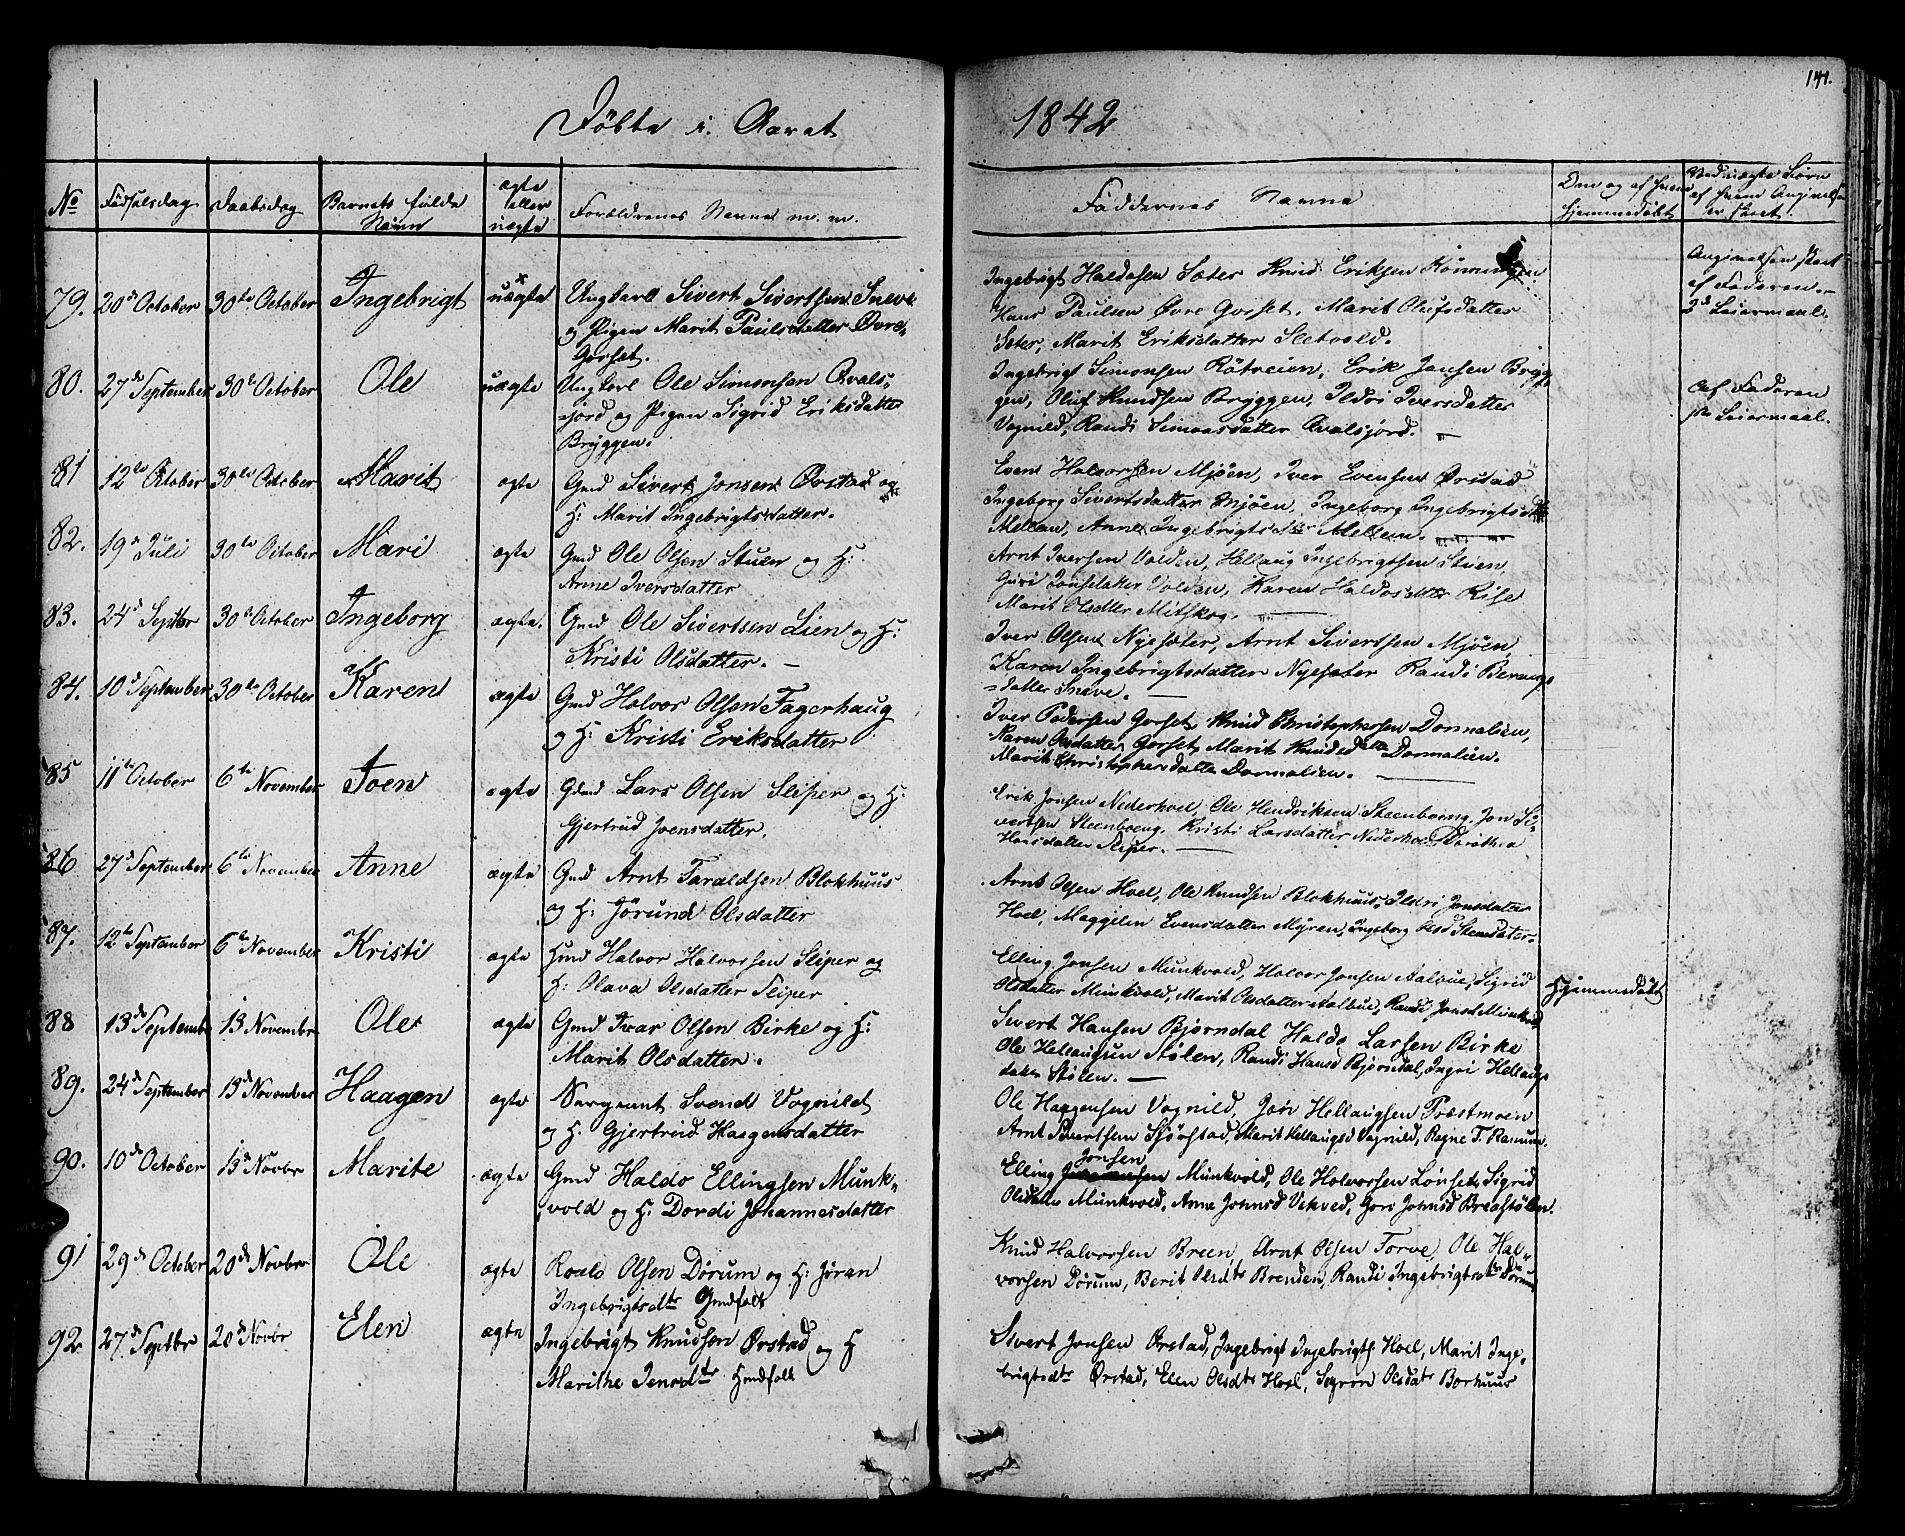 141.
Døbte i Aaret 1842
No Fødselsdag Daabsdag Barnets fulde Navn ægte eller uægte Forældrenes Navne m. m. Faddernes Navne Om og af hvem hjemmedøbt Ved uægte Børn af hvem Angivelsen er skeet.
79. 20de October 30te October Ingebrigt uægte Ungkarl Sivert Sivertsen Sneve
og Pigen Marit Paulsdatter Øvre-
Gorset.
Ingebrigt Haldosen Sæter Knud Eriksen
Hans Paulsen Øvre Gorset, Marit Olufsdatter
Sæter, Marit Eriksdatter Sletvold.
Angivelsen skeet
af Faderen.
2d Leiermaal.
80. 27de September 30te October Ole uægte Ungkarl Ole Simonsen Qvals-
fjord og Pigen Sigrid Eriksdatter
Bryggen.
Ingebrigt Simonsen Røtveien, Erik Jonsen Bryg-
gen, Oluf Knudsen Bryggen, Ildri Iversdatter
Vognild, Randi Simonsdatter Qvalsjord.
Af Faderen
Leiermaal.
81 12te October 30te October Marit ægte Gmd Sivert Jonsen Ørstad og
H: Marit Ingebrigtsdatter.
Even Halvorsen Mjøen, Iver Evensen Ørstad
Ingeborg Sivertsdatter Mjøen, Ingeborg Ingebrigtsdtr
Mellem, Anne Ingebrigtsdtr Mellem.
82. 19de Juli 30te October Mari ægte Gmd Ole Olsen Stuen og H:
Anne Iversdatter
Arnt Iversen Volden, Hellaug Ingebrigtsen Stuen,
Guri Jonsdatter Volden, Karen Haldosdtr Rise
Marit Olsdtter Mitskog.
83. 24de Septbr 30te October Ingeborg ægte. Gmd Ole Sivertsen Lien og H:
Kristi Olsdatter.
Iver Olsen Nysæter, Arnt Sivertsen Mjøen
Karen Ingebrigtsdatter Nysæter Randi
datter Sneve.
84. 10de September 30te October Karen ægte Gmd Halvor Olsen Fagerhaug
og H: Kristi Eriksdatter
Iver Pedersen Gorset, Knud Christophersen Donnalien,
Karen Olsdatter Gorset, Marit Knudsdatter Donnalien.
Marit Christophersdatter Donnalien.
85 11te October 6te November Joen ægte Gmd Lars Olsen Sliper og H:
Gjertrud Joensdatter.
Erik Jonsen Nederhoel, Ole Hendriksen Steenboeng, Jon Si-
vertsen Steenboeng, Kristi Larsdatter Nederhoel Dorothea
Hansdatter Sliper.
86 27de September 6te November Anne ægte Gmd Arnt Taraldsen Blokhuus
og H: Jørund Olsdatter
Arnt Olsen Hoel, Ole Knudsen Blokhuus, Ildri Jonsdatter
Hoel, Maggelen Evensdatter Myren, Ingeborg
87. 12te September 6te November Kristi ægte Hmd Halvor Halvorsen Sliper og
H: Olava Olsdatter Sliper
Elling Jonsen Munkvold, Halvor Jonsen Aalbue, Sigrid
Olsdatter Munkvold, Marit Olsdatter Aalbue, Randi Jonsd Munkvold
Hjemmedøbt
88 13de September 13 Novembr Ole ægte Gmd Ivar Olsen Birke og H:
Marit Olsdatter.
Sivert Hansen Bjørndal Haldo Larsen Birke
Ole Hellaugsen Stølen, Randi Hansd Bjørndal, Ingri Hellaugs
datter Stølen.
89. 24de September 13de November Haagen ægte Sergeant Svend Vognild
og H: Gjertrud Haagensdatter
Ole Haagensen Vognild, Jon Hellaugsen Præstmoen
Arnt Sivertsen Sjørstad, Marit Hellaugsd Vognild, Ragne T. Ramum.
90. 10de October 13de Novbr Marite ægte Gmd Haldo Ellingsen Munk-
vold og H: Dordi Johannesdatter
Elling Jonsen Munkvold, Ole Halvorsen Lønset, Sigrid
Olsdatter Munkvold, Anne Johnsd Vekved, Gori Johnsd Breastølen.
91 29de October 20de Novbr Ole ægte Roald Olsen Dørum og H: Jøran
Ingebrigtsdtr Gmdfolk
Knud Halvorsen Breen, Arnt Olsen Torve, Ole Hal-
vorsen Dørum, Berit Olsdtr Brenden, Randi Ingebrigtsdtr Dørum
92 27de Septbr 20de Novbr Elen ægte Ingebrigt Knudsen Ørstad og H
Marithe Jensdtr Hmdfolk
Sivert Jonsen Ørstad, Ingebrigt Ingebrigts Hoel, Marit Inge-
brigtsdtr Ørstad, Elen Olsdtr Hoel, Segron Olsdatr Borhuus